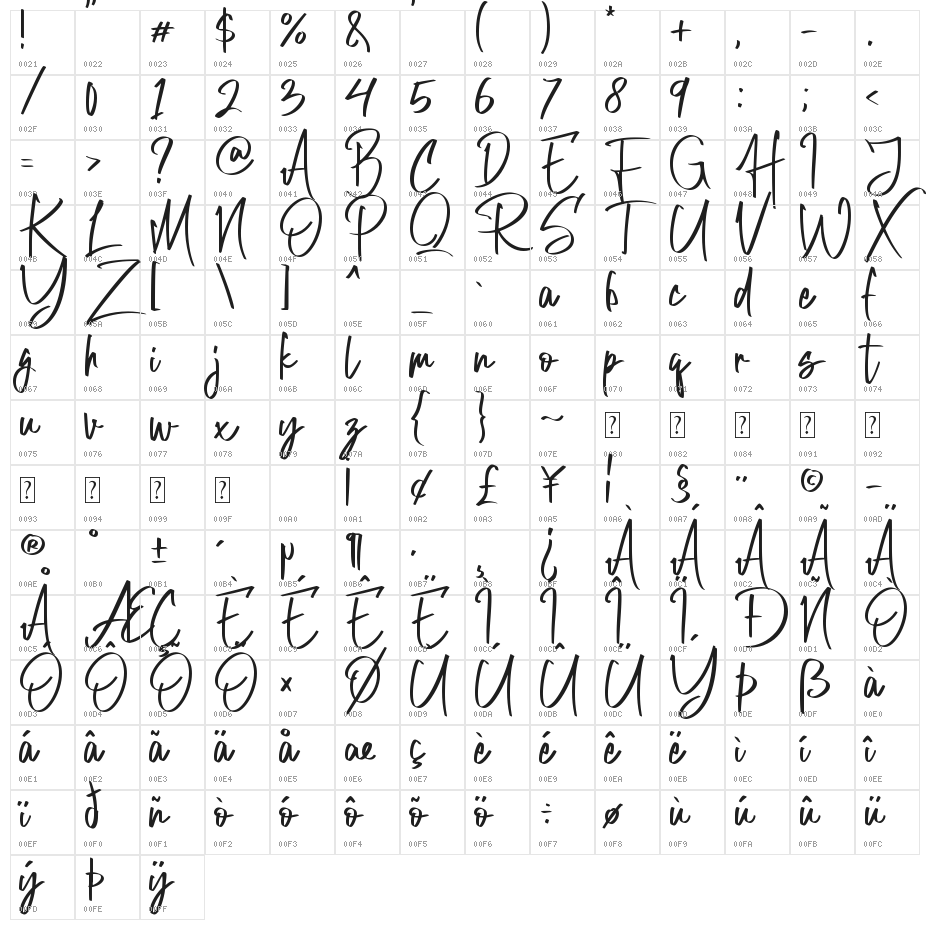 ! " # $ % & ' ( ) * + , - .
0021 0022 0023 0024 0025 0026 0027 0028 0029 002A 002B 002C 002D 002E
/ 0 1 2 3 4 5 6 7 8 9 : ; <
002F 0030 0031 0032 0033 0034 0035 0036 0037 0038 0039 003A 003B 003C
= > ? @ A B C D E F G H I J
003D 003E 003F 0040 0041 0042 0043 0044 0045 0046 0047 0048 0049 004A
K L M N O P Q R S T U V W X
004B 004C 004D 004E 004F 0050 0051 0052 0053 0054 0055 0056 0057 0058
Y Z [ \ ] ^ _ ` a b c d e f
0059 005A 005B 005C 005D 005E 005F 0060 0061 0062 0063 0064 0065 0066
g h i j k l m n o p q r s t
0067 0068 0069 006A 006B 006C 006D 006E 006F 0070 0071 0072 0073 0074
u v w x y z { } ~ ? ? ? ? ?
0075 0076 0077 0078 0079 007A 007B 007D 007E 0080 0082 0084 0091 0092
? ? ? ? ¡ ¢ £ ¥ ¦ § ¨ © -
0093 0094 0099 009F 00A0 00A1 00A2 00A3 00A5 00A6 00A7 00A8 00A9 00AD
® ° ± ´ µ ¶ · ¸ ¿ À Á Â Ã Ä
00AE 00B0 00B1 00B4 00B5 00B6 00B7 00B8 00BF 00C0 00C1 00C2 00C3 00C4
Å Æ Ç È É Ê Ë Ì Í Î Ï Ð Ñ Ò
00C5 00C6 00C7 00C8 00C9 00CA 00CB 00CC 00CD 00CE 00CF 00D0 00D1 00D2
Ó Ô Õ Ö × Ø Ù Ú Û Ü Ý Þ ß à
00D3 00D4 00D5 00D6 00D7 00D8 00D9 00DA 00DB 00DC 00DD 00DE 00DF 00E0
á â ã ä å æ ç è é ê ë ì í î
00E1 00E2 00E3 00E4 00E5 00E6 00E7 00E8 00E9 00EA 00EB 00EC 00ED 00EE
ï ð ñ ò ó ô õ ö ÷ ø ù ú û ü
00EF 00F0 00F1 00F2 00F3 00F4 00F5 00F6 00F7 00F8 00F9 00FA 00FB 00FC
ý þ ÿ
00FD 00FE 00FF